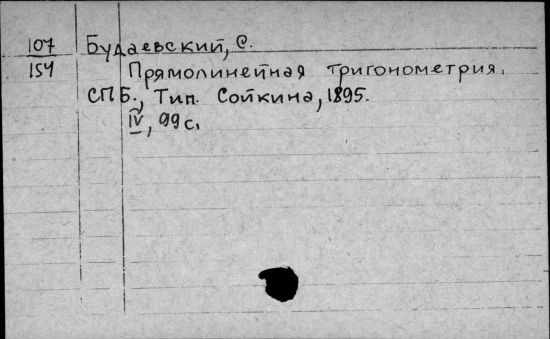 107
154
Будаевский, С.
Прямолинейная тригонометрия.
СПБ., Тип. Сойкина, 1895.
IV, 99 с.